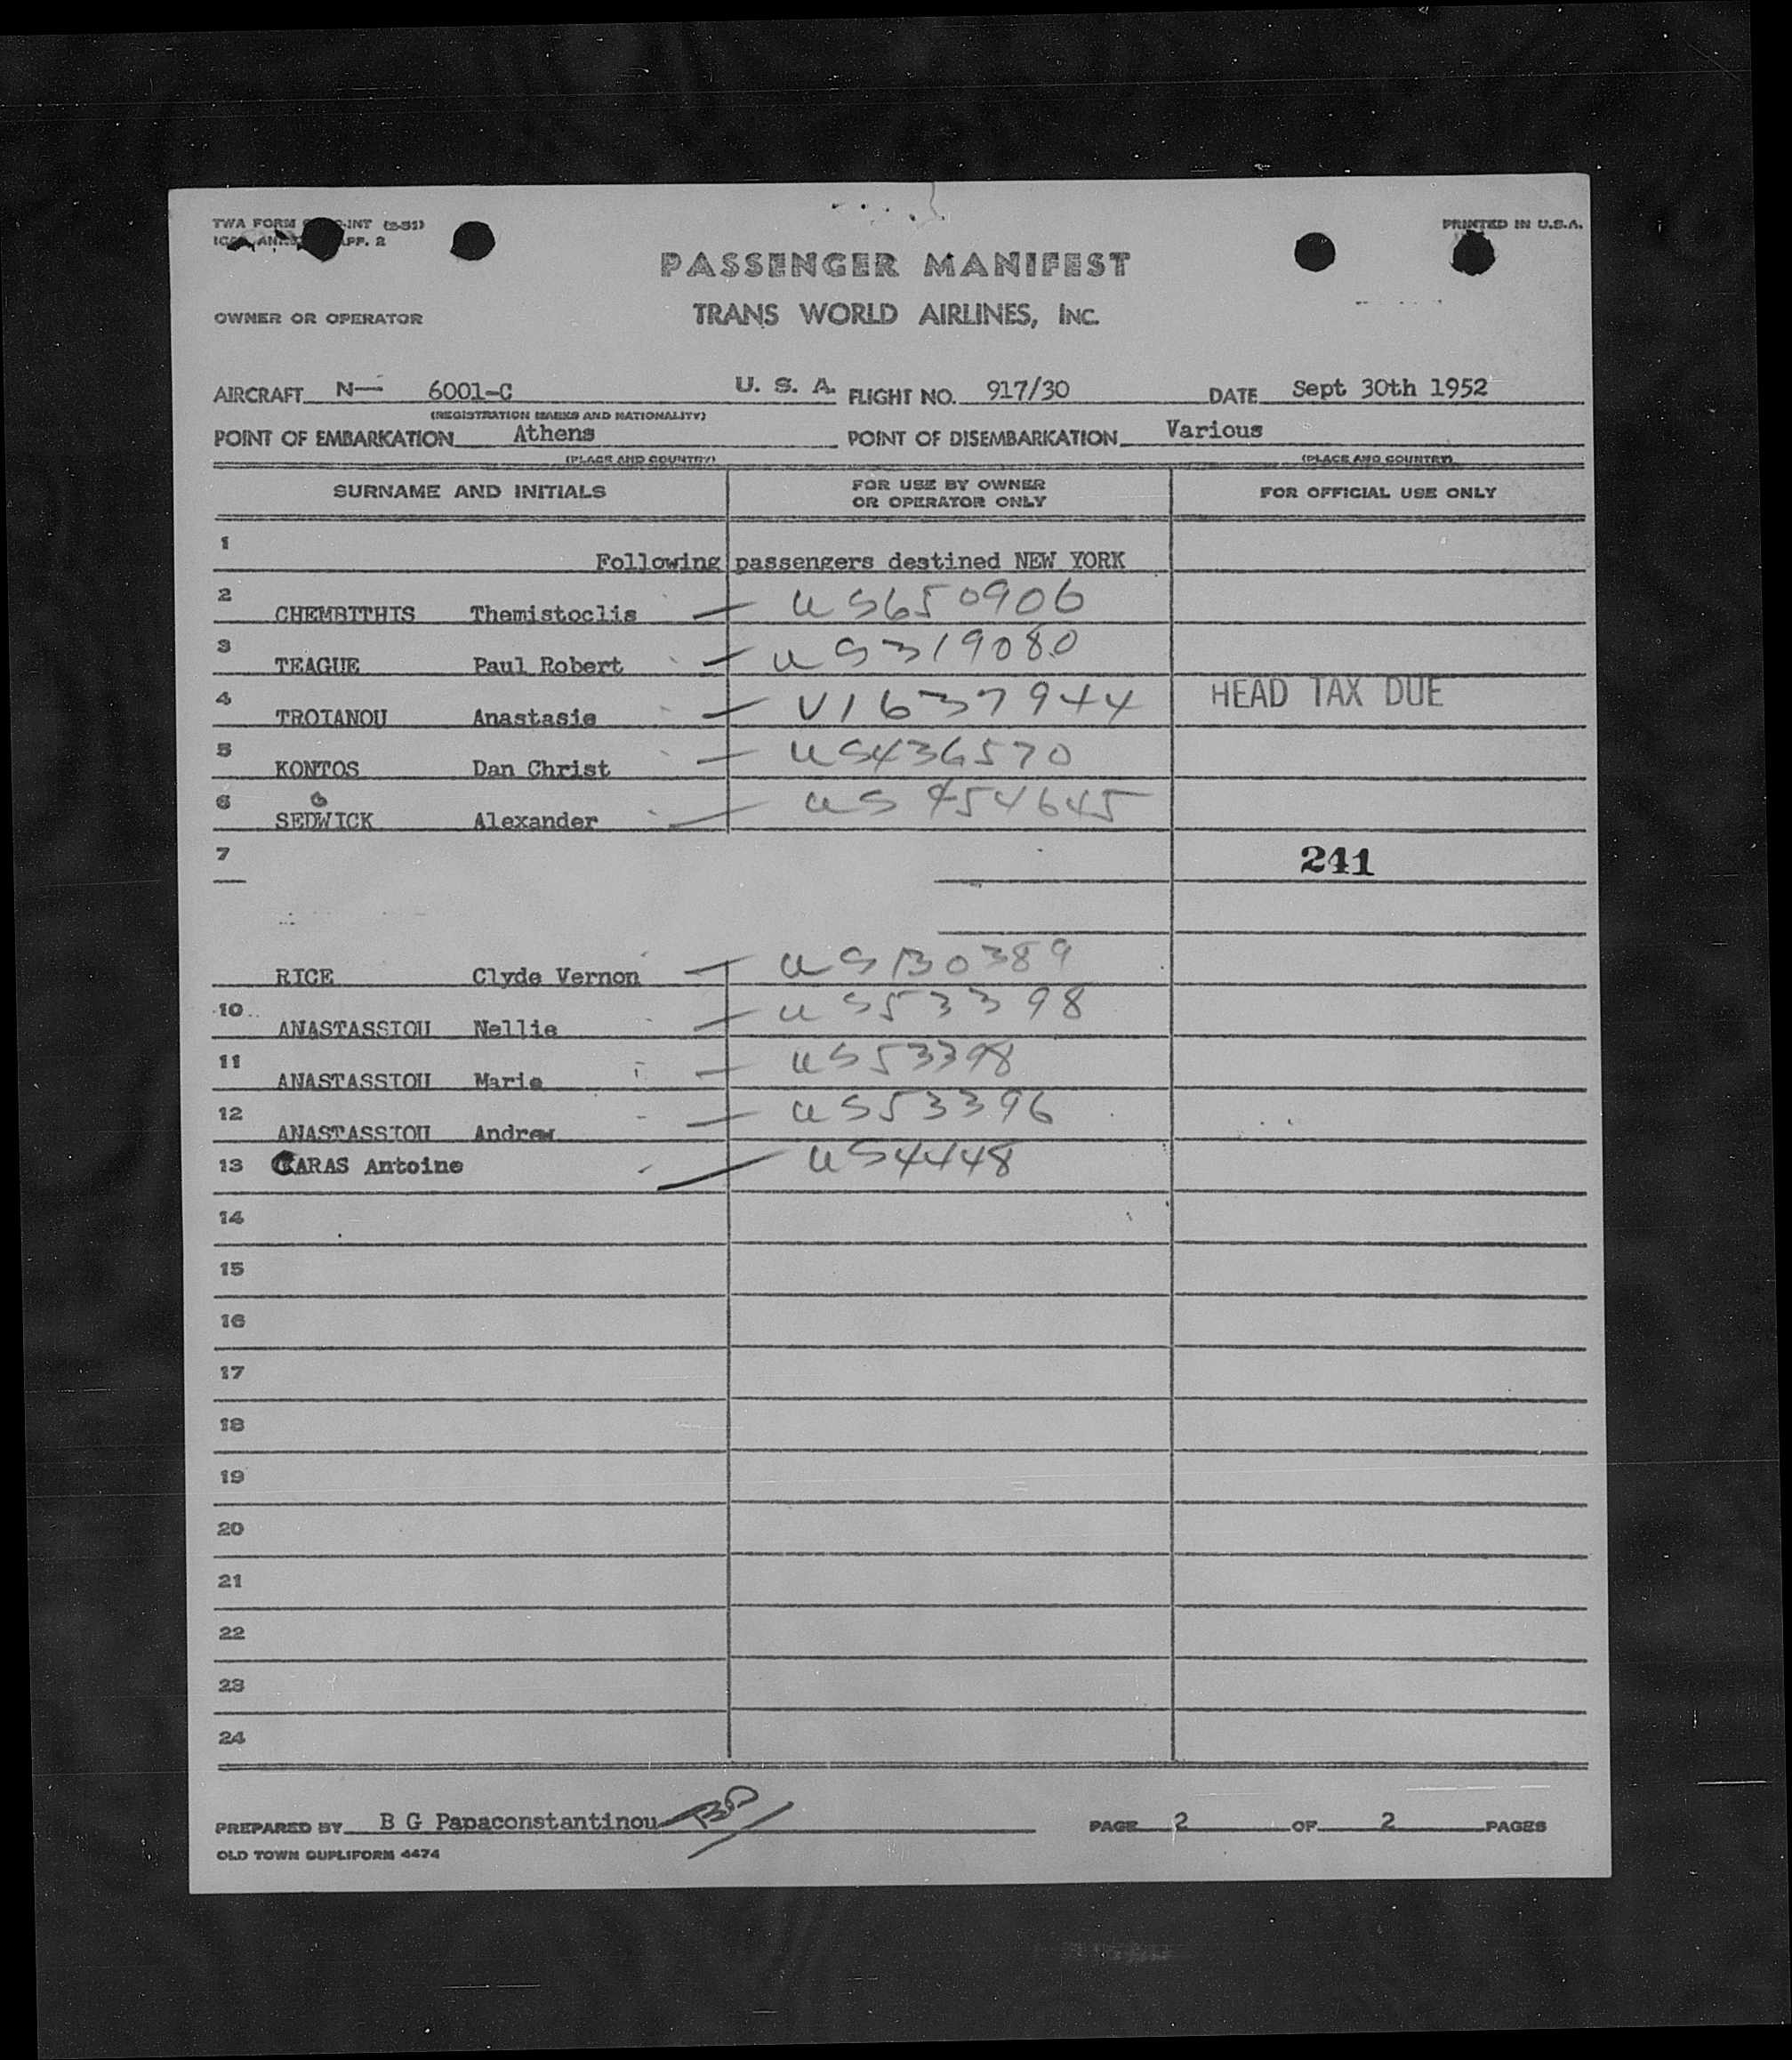 TWA FORM INT (2-51)
PRINTED IN U.S.A.
APP. 2
PASSENGER MANIFEST
OWNER OR OPERATOR TRANS WORLD AIRLINES, INC.
AIRCRAFT N— 6001-C U. S. A. FLIGHT NO. 917/30 DATE Sept 30th 1952
(REGISTRATION MARKS AND NATIONALITY)
POINT OF EMBARKATION Athens POINT OF DISEMBARKATION Various
(PLACE AND COUNTRY) (PLACE AND COUNTRY)
SURNAME AND INITIALS FOR USE BY OWNER OR OPERATOR ONLY FOR OFFICIAL USE ONLY
1 Following passengers destined NEW YORK
2 CHEMBITHIS Themistoclis — US650906
3 TEAGUE Paul Robert — US319080
4 TROIANOU Anastasie — V1637944 HEAD TAX DUE
5 KONTOS Dan Christ — US436570
6 SEDWICK Alexander — US 454645
7 241
RICE Clyde Vernon — US130389
10 ANASTASSIOU Nellie — US53398
11 ANASTASSIOU Marie — US53398
12 ANASTASSIOU Andrew — US53396
13 CARAS Antoine — US4448
14
15
16
17
18
19
20
21
22
23
24
PREPARED BY B G Papaconstantinou PAGE 2 OF 2 PAGES
OLD TOWN DUPLIFORM 4474